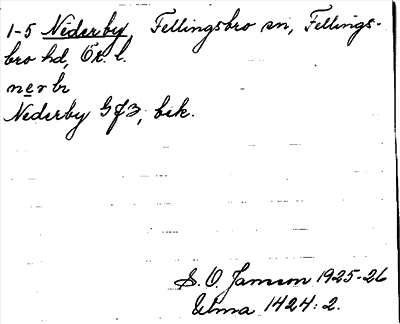 1-5 Nederby, Fellingsbro sn, Fellings-
bro hd, Ör. l.
nerbr
Nederby G f 3, bek.
S. O. Jansson 1925-26
Ulma 1424: 2.